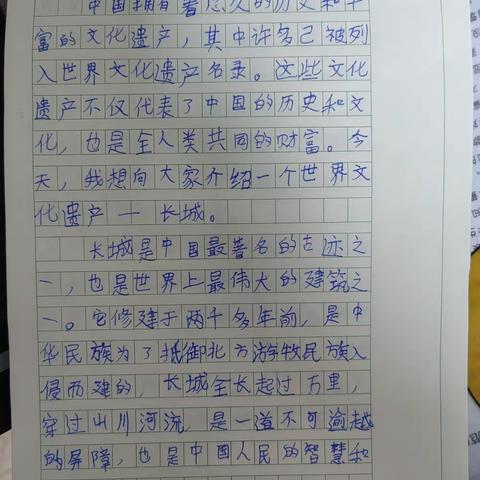 中国拥有着悠久的历史和丰
富的文化遗产，其中许多已被列
入世界文化遗产名录。这些文化
遗产不仅代表了中国的历史和文
化，也是全人类共同的财富。今
天，我想向大家介绍一个世界文
化遗产 — 长城。
长城是中国最著名的古迹之
一，也是世界上最伟大的建筑之
一。它修建于两千多年前，是中
华民族为了抵御北方游牧民族入
侵而建的，长城全长起过万里，
穿过山川河流，是一道不可逾越
的屏障，也是中国人民的智慧和